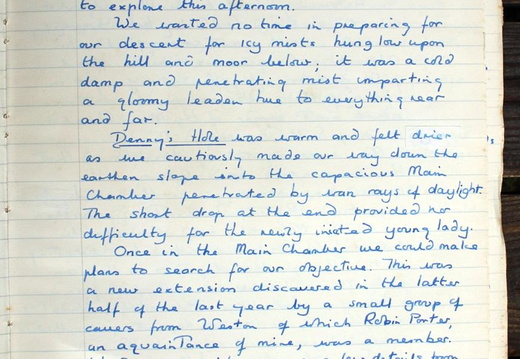 to explore this afternoon.
We wasted no time in preparing for
our descent for icy mists hung low upon
the hill and moor below; it was a cold
damp and penetrating mist imparting
a gloomy leaden hue to everything near
and far.
Denny's Hole was warm and felt drier
as we cautiously made our way down the
earthen slope into the capacious Main
Chamber penetrated by wan rays of daylight.
The short drop at the end provided no
difficulty for the newly initiated young lady.
Once in the Main Chamber we could make
plans to search for our objective. This was
a new extension discovered in the latter
half of the last year by a small group of
cavers from Weston of which Robin Porter,
an aquaintance of mine, was a member.
details from